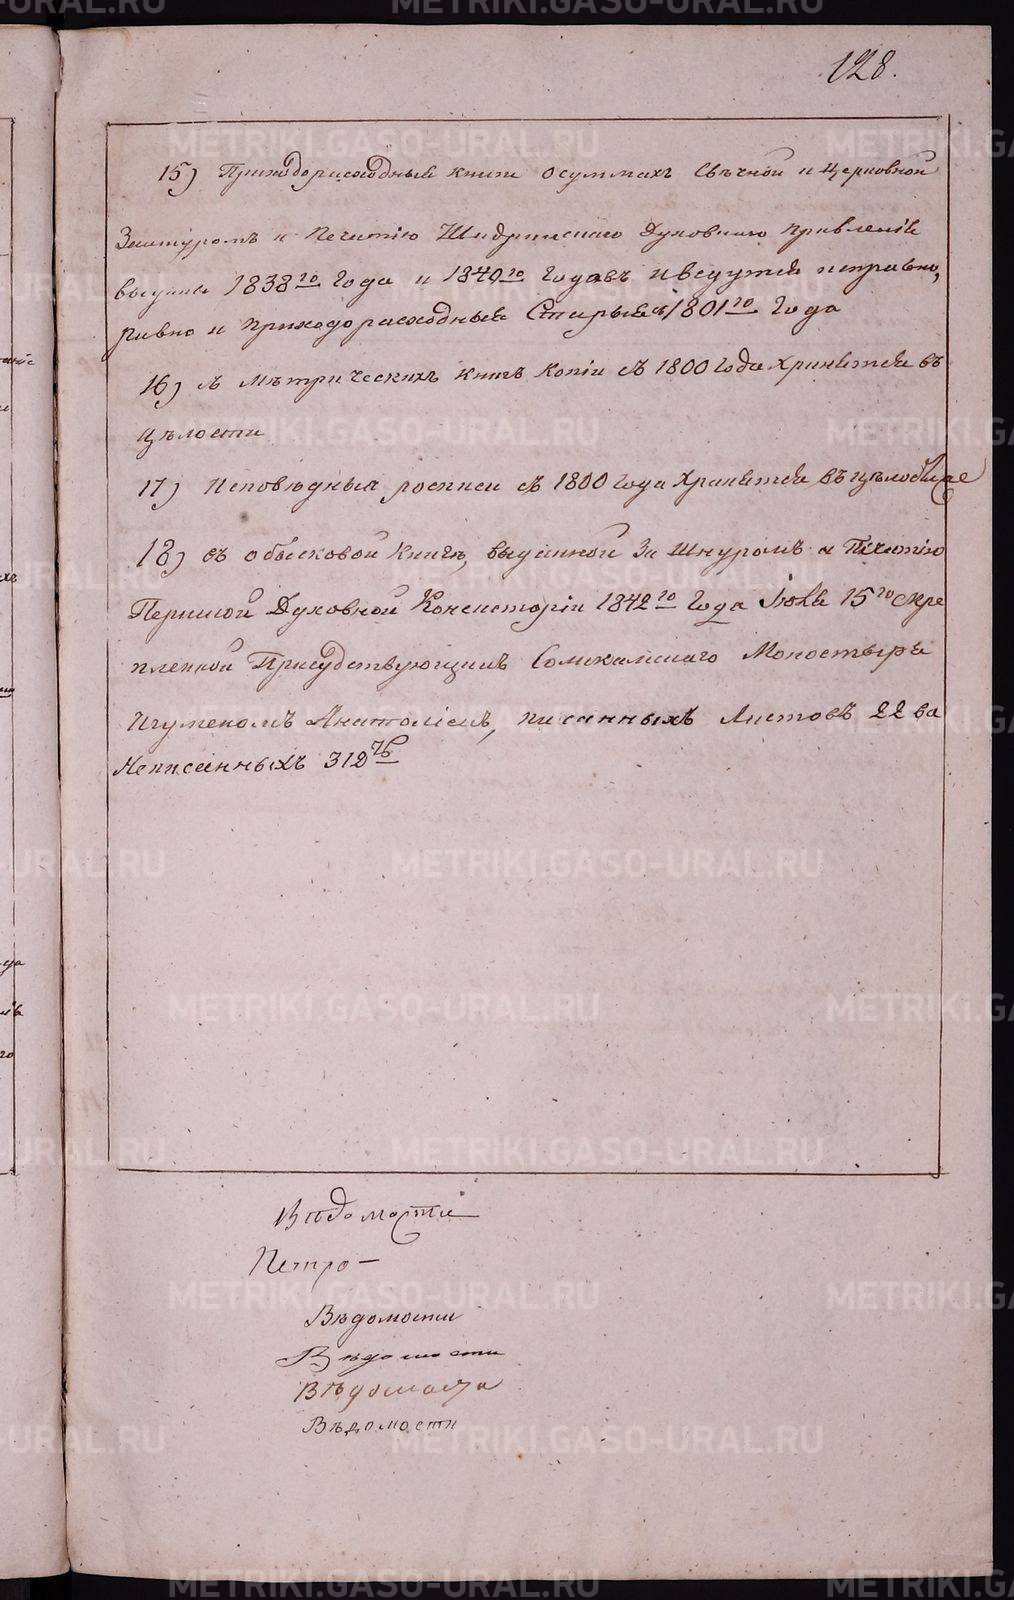 128.
15) Приходорасходныя книги о суммахъ Свѣчной и Церковной
За шнуромъ и Печатію Шадринскаго Духовнаго Правленія
выданы 1838го Года и 1840го Годовъ и ведутся исправно,
равно и приходорасходныя Старыя с 1801го Года
16) съ метрическихъ книгъ копіи съ 1800 Года Хранятся въ
цѣлости
17) Исповѣдныя росписи съ 1800 Года Хранятся въ цѣлости
18) въ обысковой книгѣ, выданной За Шнуромъ и Печатію
Пермской Духовной Консисторіи 1842го Года Іюля 15го скре
пленной Присудствующимъ Соликамскаго Монастыря
Игуменомъ Анатоліемъ, писанныхъ Листовъ 22 ва
Неписанныхъ 312
Вѣдомости
Петро —
Вѣдомости
Вѣдомости
Вѣдомости
METRIKI.GASO-URAL.RU